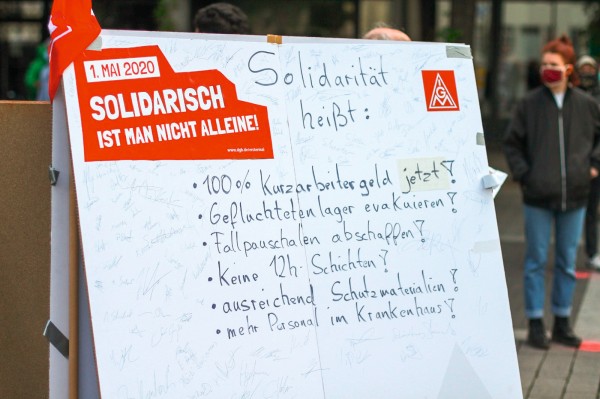 1. MAI 2020
SOLIDARISCH
IST MAN NICHT ALLEINE!
Solidarität
heißt:
• 100% Kurzarbeitergeld jetzt!
• Geflüchtetenlager evakuieren!
• Fallpauschalen abschaffen!
• Keine 12h-Schichten!
• ausreichend Schutzmaterialien!
• mehr Personal im Krankenhaus!